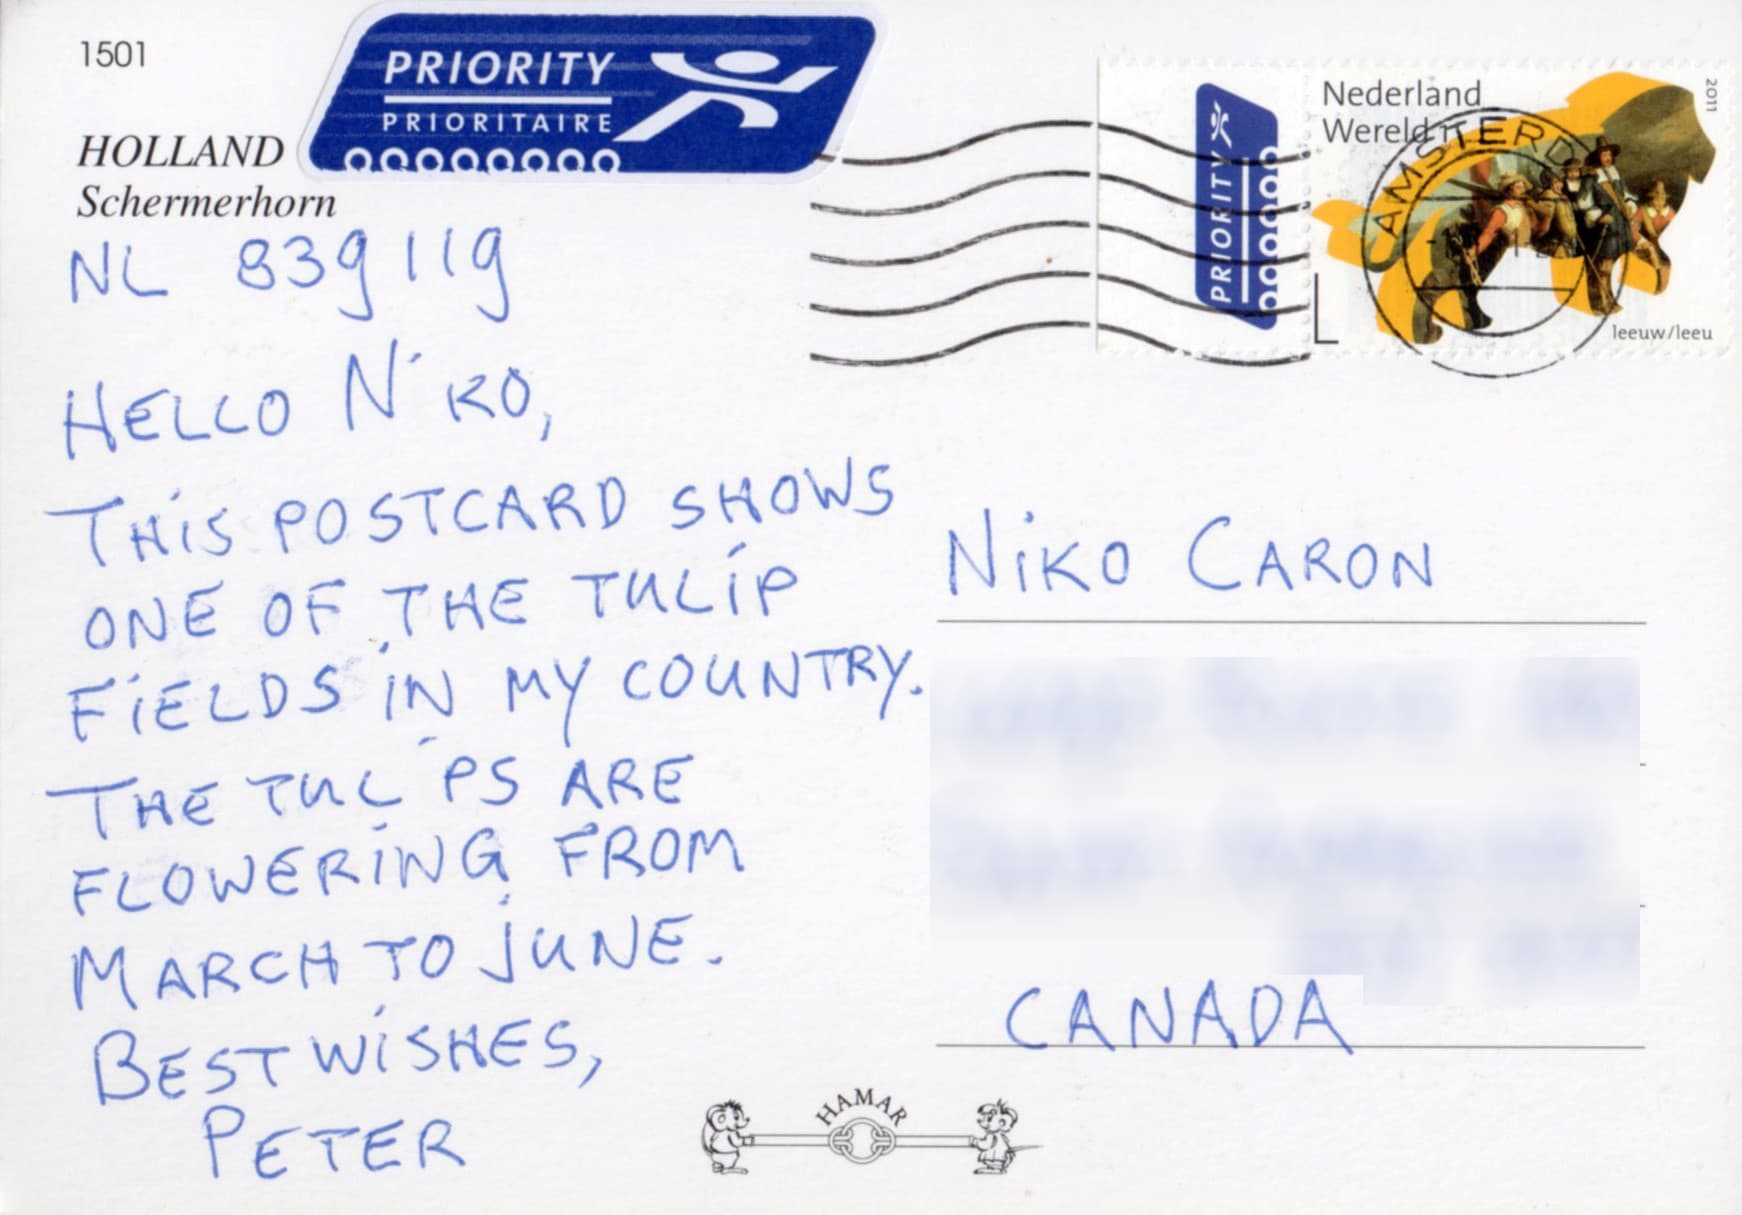 1501
PRIORITY
PRIORITAIRE
HOLLAND
Schermerhorn
NL 839119
HELLO NiKO,
THiS POSTCARD SHOWS
ONE OF THE TULiP
FiELDS iN MY COUNTRY.
THE TULiPS ARE
FLOWERiNG FROM
MARCH TO jUNE.
BEST WiSHES,
PETER
PRIORITY
Nederland
Wereld
2011
leeuw/leeu
NiKO CARON
CANADA
HAMAR